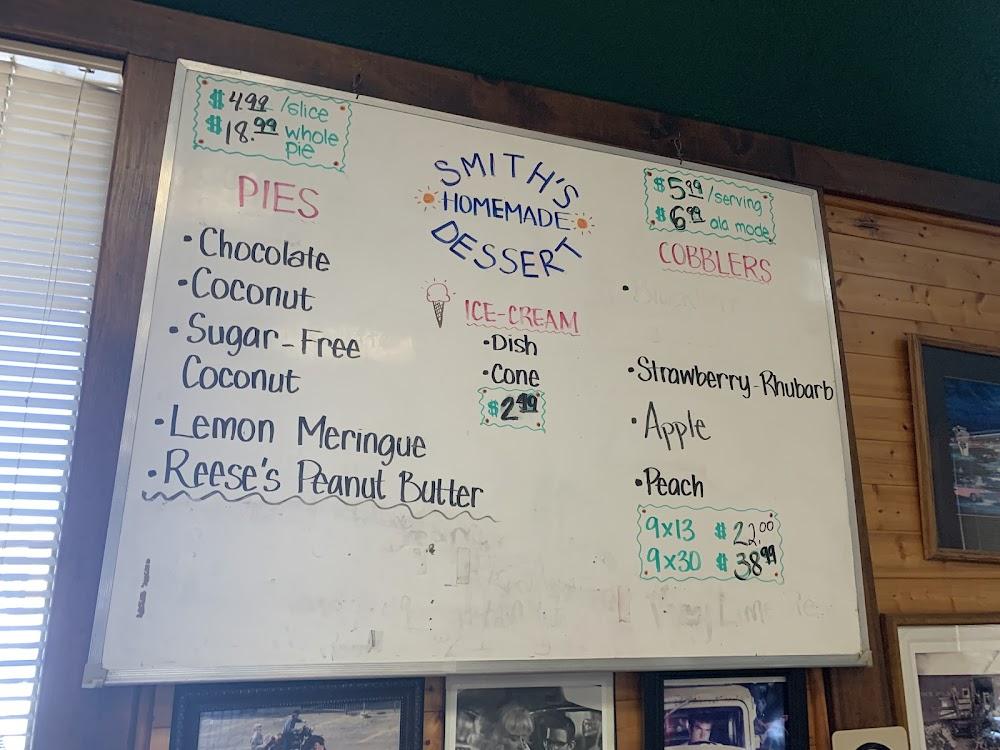 $4.99 /slice
$18.99 whole
pie
PIES
• Chocolate
• Coconut
• Sugar-Free
Coconut
• Lemon Meringue
• Reese's Peanut Butter
SMITH'S
HOMEMADE
DESSERT
ICE-CREAM
• Dish
• Cone
$2.49
$5.99 /serving
$6.99 ala mode
COBBLERS
•
• Strawberry-Rhubarb
• Apple
• Peach
9x13 $22.00
9x30 $38.99